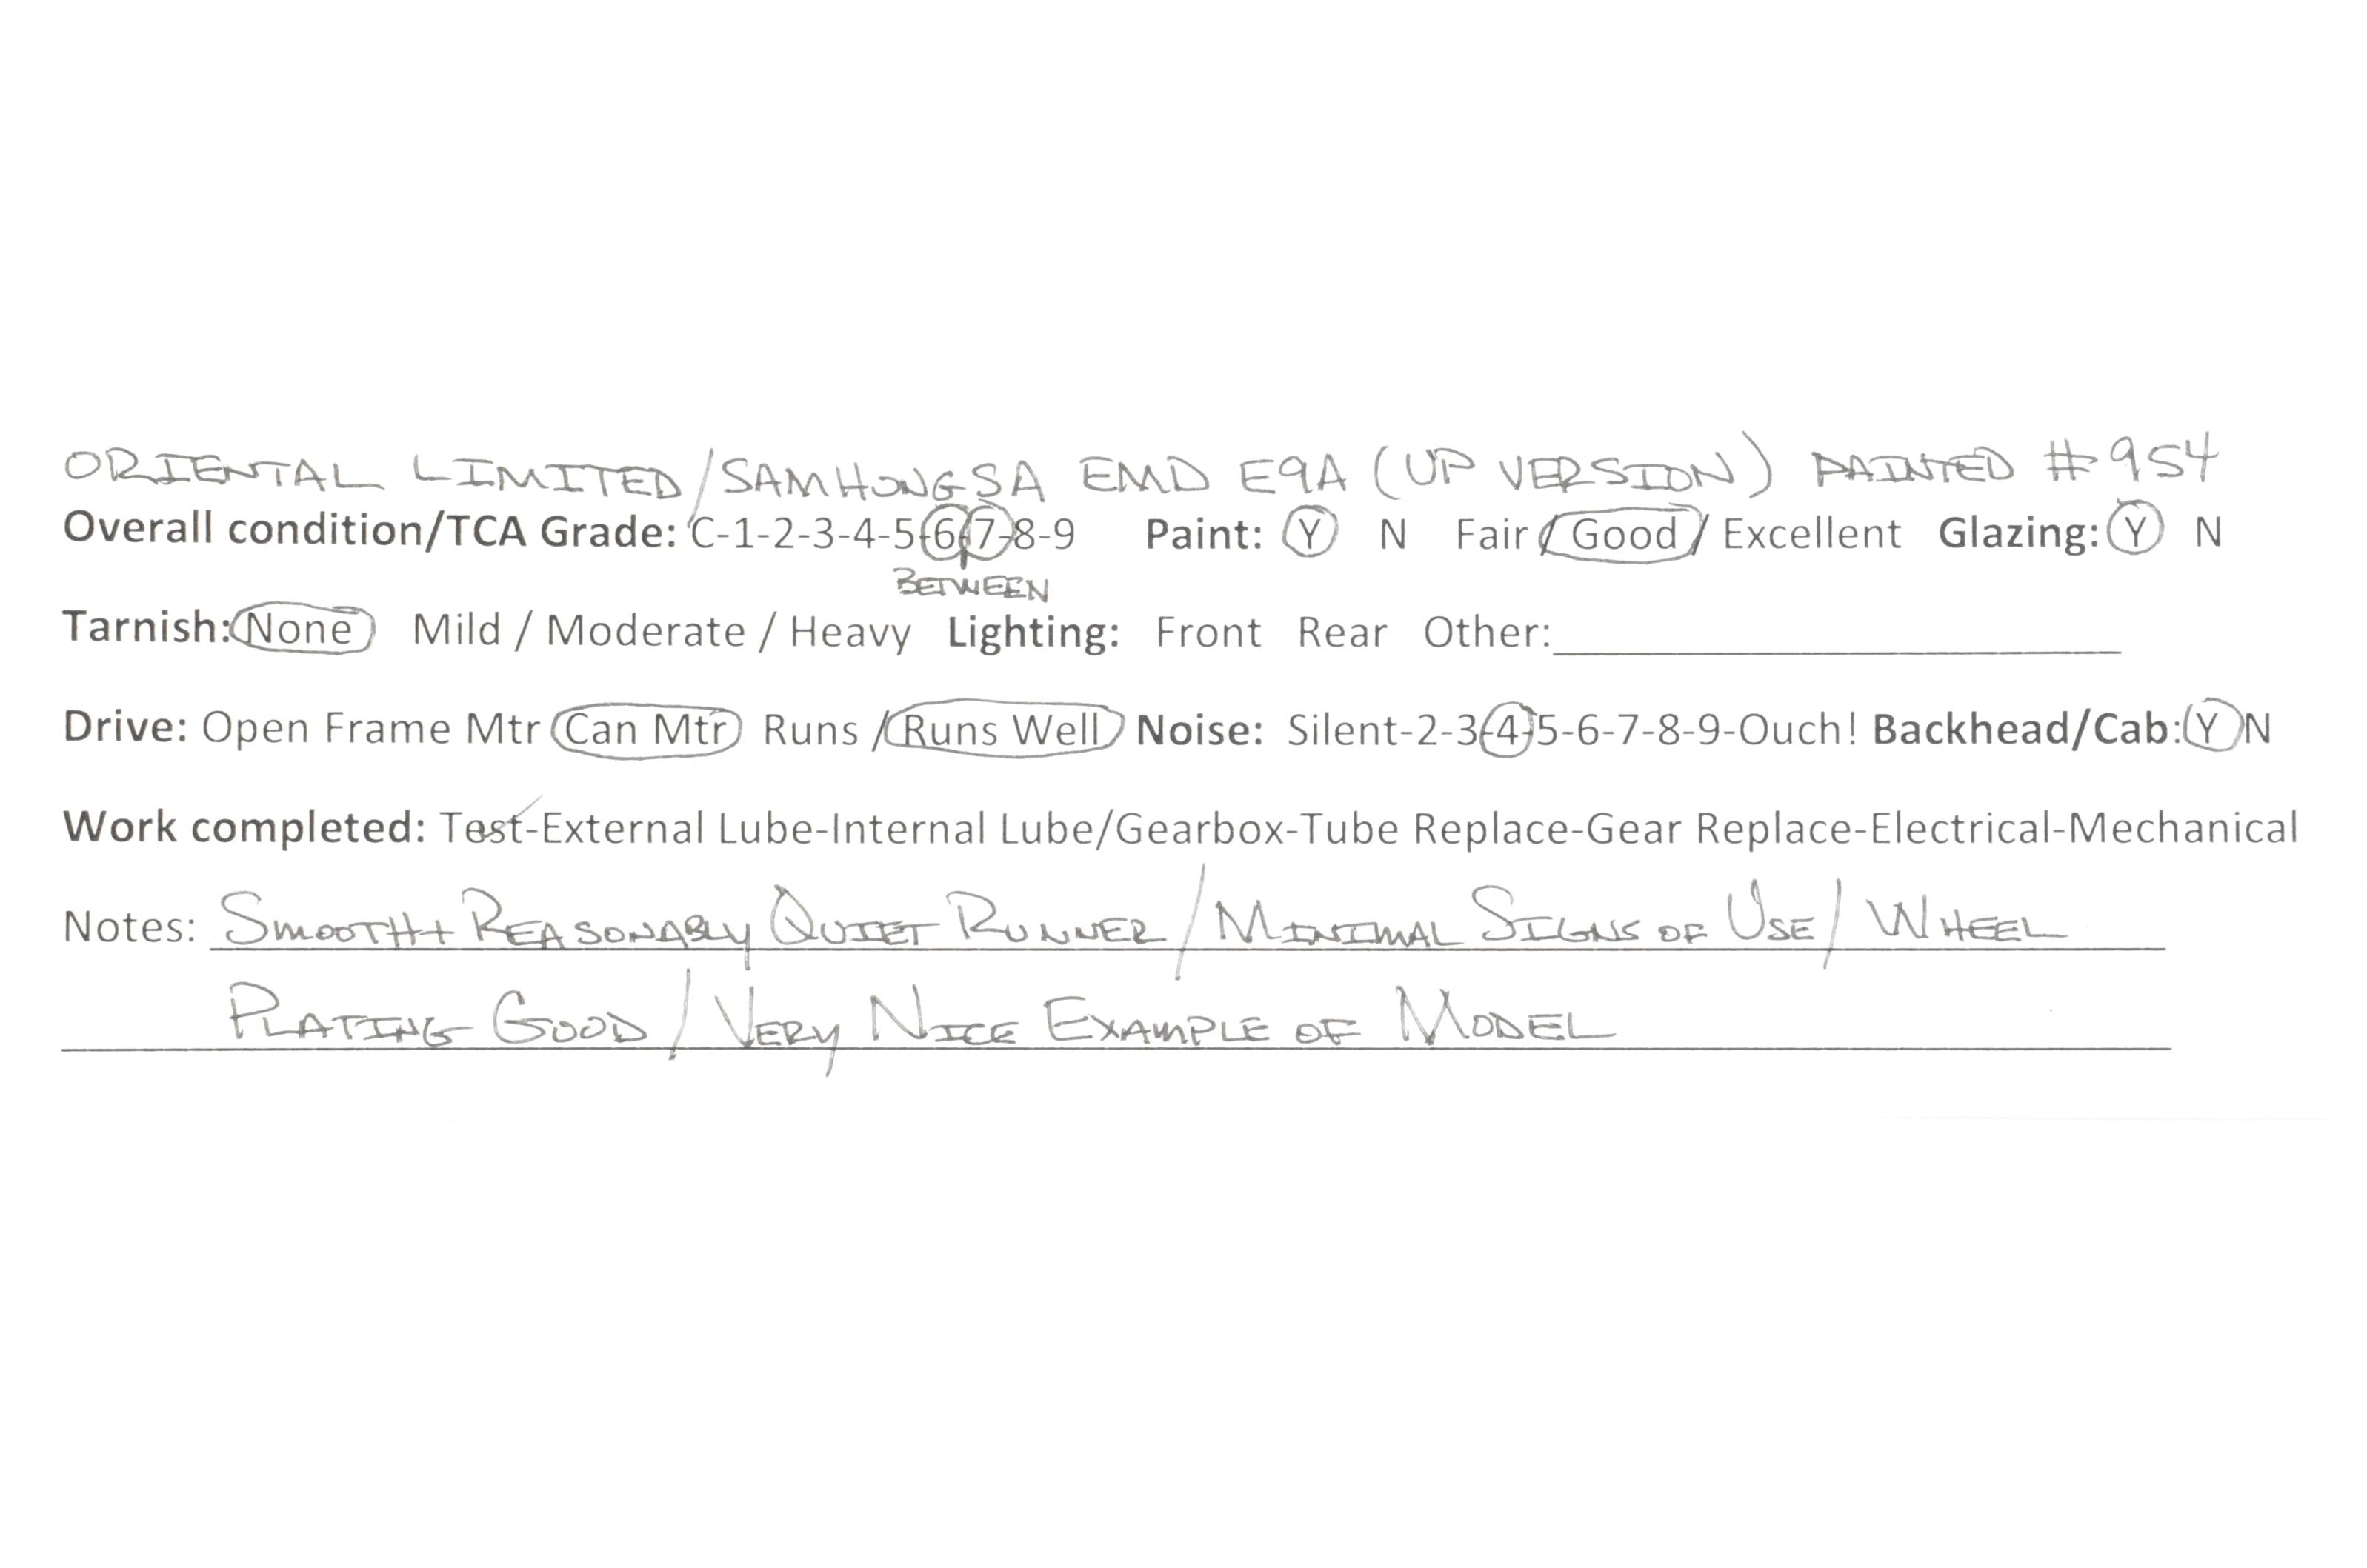 ORIENTAL LIMITED/SAMHONGSA EMD E9A (UP VERSION) PAINTED #954
Overall condition/TCA Grade: C-1-2-3-4-5-6-7-8-9 Paint: Y N Fair / Good / Excellent Glazing: Y N
BETWEEN
Tarnish: None Mild / Moderate / Heavy Lighting: Front Rear Other:
Drive: Open Frame Mtr Can Mtr Runs / Runs Well Noise: Silent-2-3-4-5-6-7-8-9-Ouch! Backhead/Cab: Y N
Work completed: Test-External Lube-Internal Lube/Gearbox-Tube Replace-Gear Replace-Electrical-Mechanical
Notes: SMOOTH + REASONABLY QUIET RUNNER / MINIMAL SIGNS OF USE / WHEEL
PLATING GOOD / VERY NICE EXAMPLE OF MODEL